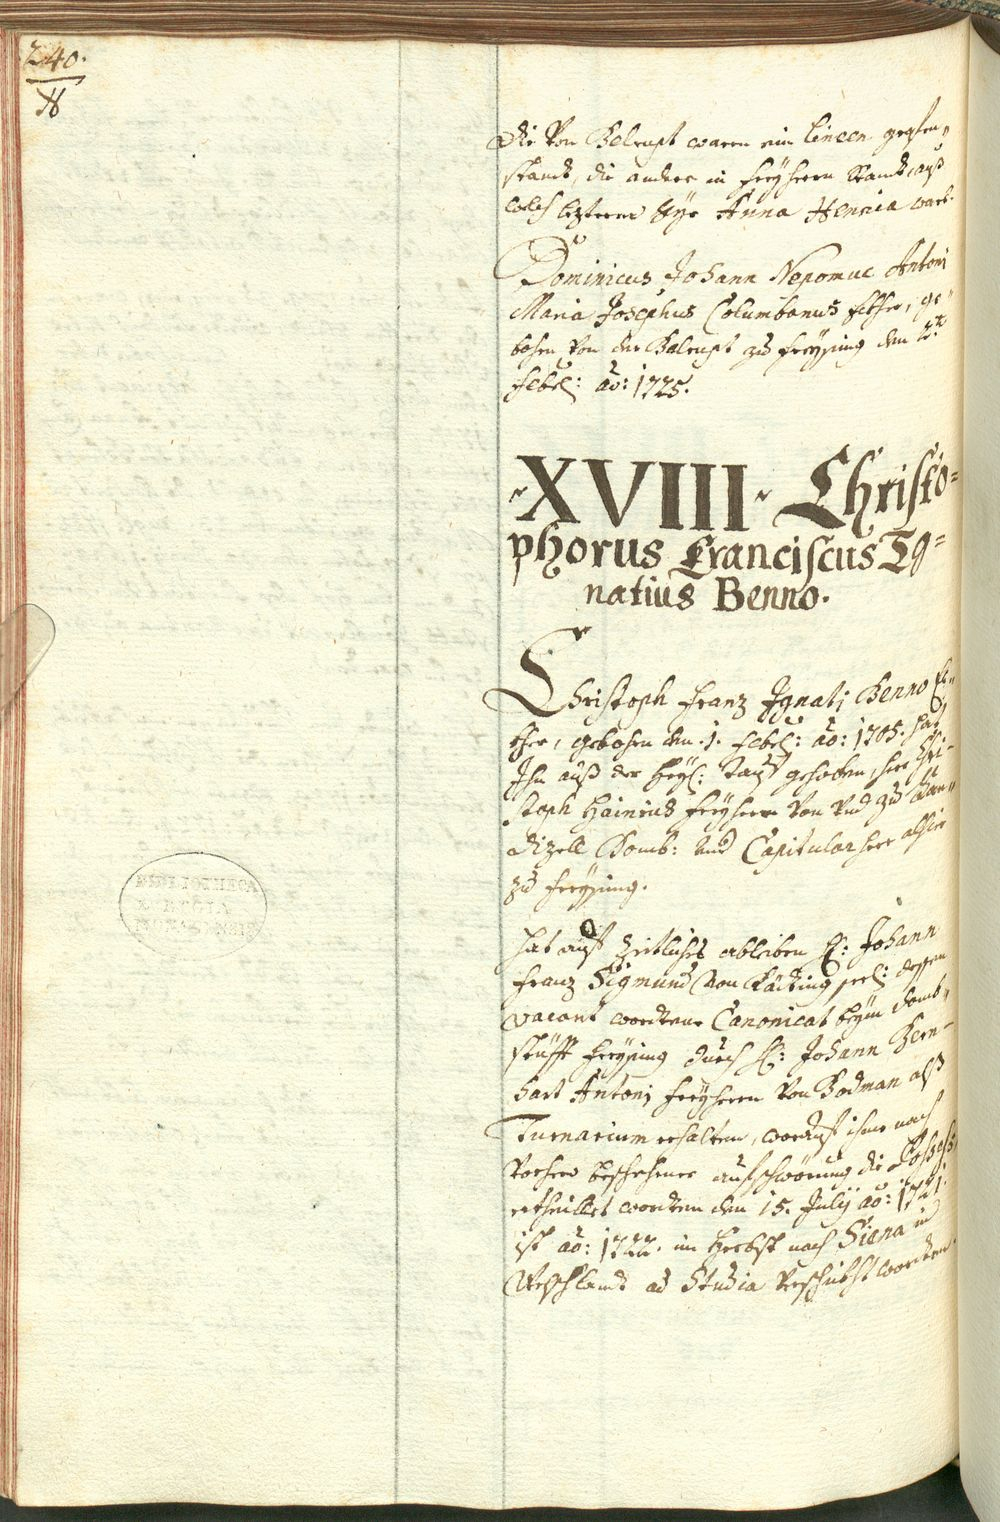 240.
die von Belrupt waren ein Lineen graffen„
standt, die andere in freyherrn Standt, auß
welch lezterer dise Anna Henrica ware.
Dominicus Johann Nepomuc Antoni
Maria Josephus Columbanus Ecker, ge„
bohren von der Belrupt zu Freysing den 2.te
Febr: ao: 1725.
XVIII. Christo=
phorus Franciscus Ig=
natius Benno.
Christoph Franz Ignati Benno E„
cker, gebohren den .1. Febr: ao: 1705. hat
Ihn auß der heyl: Tauf gehoben, herr Chri„
stoph Hainrich freyherr von und zu
dizell Domb: und Capitular herr alhier
zu Freysing.
hat auf zeitliches ableiben H: Johann
Franz Sigmund von seel: dessen
vacant wordtene Canonicat beym Domb„
stüfft Freysing durch H: Johann Bern„
hart Antoni freyherrn von Bodman alß
Turnarium erhalten, worauf ihme nach
vorhero beschehener aufschwörung die Possess
ertheillet worden den 15. July ao: 1721.
ist ao: 1722. im herbst nach Siena in
Welschlandt ad Studia verschickht worden.
BIBLIOTHECA
REGIA
MONACENSIS